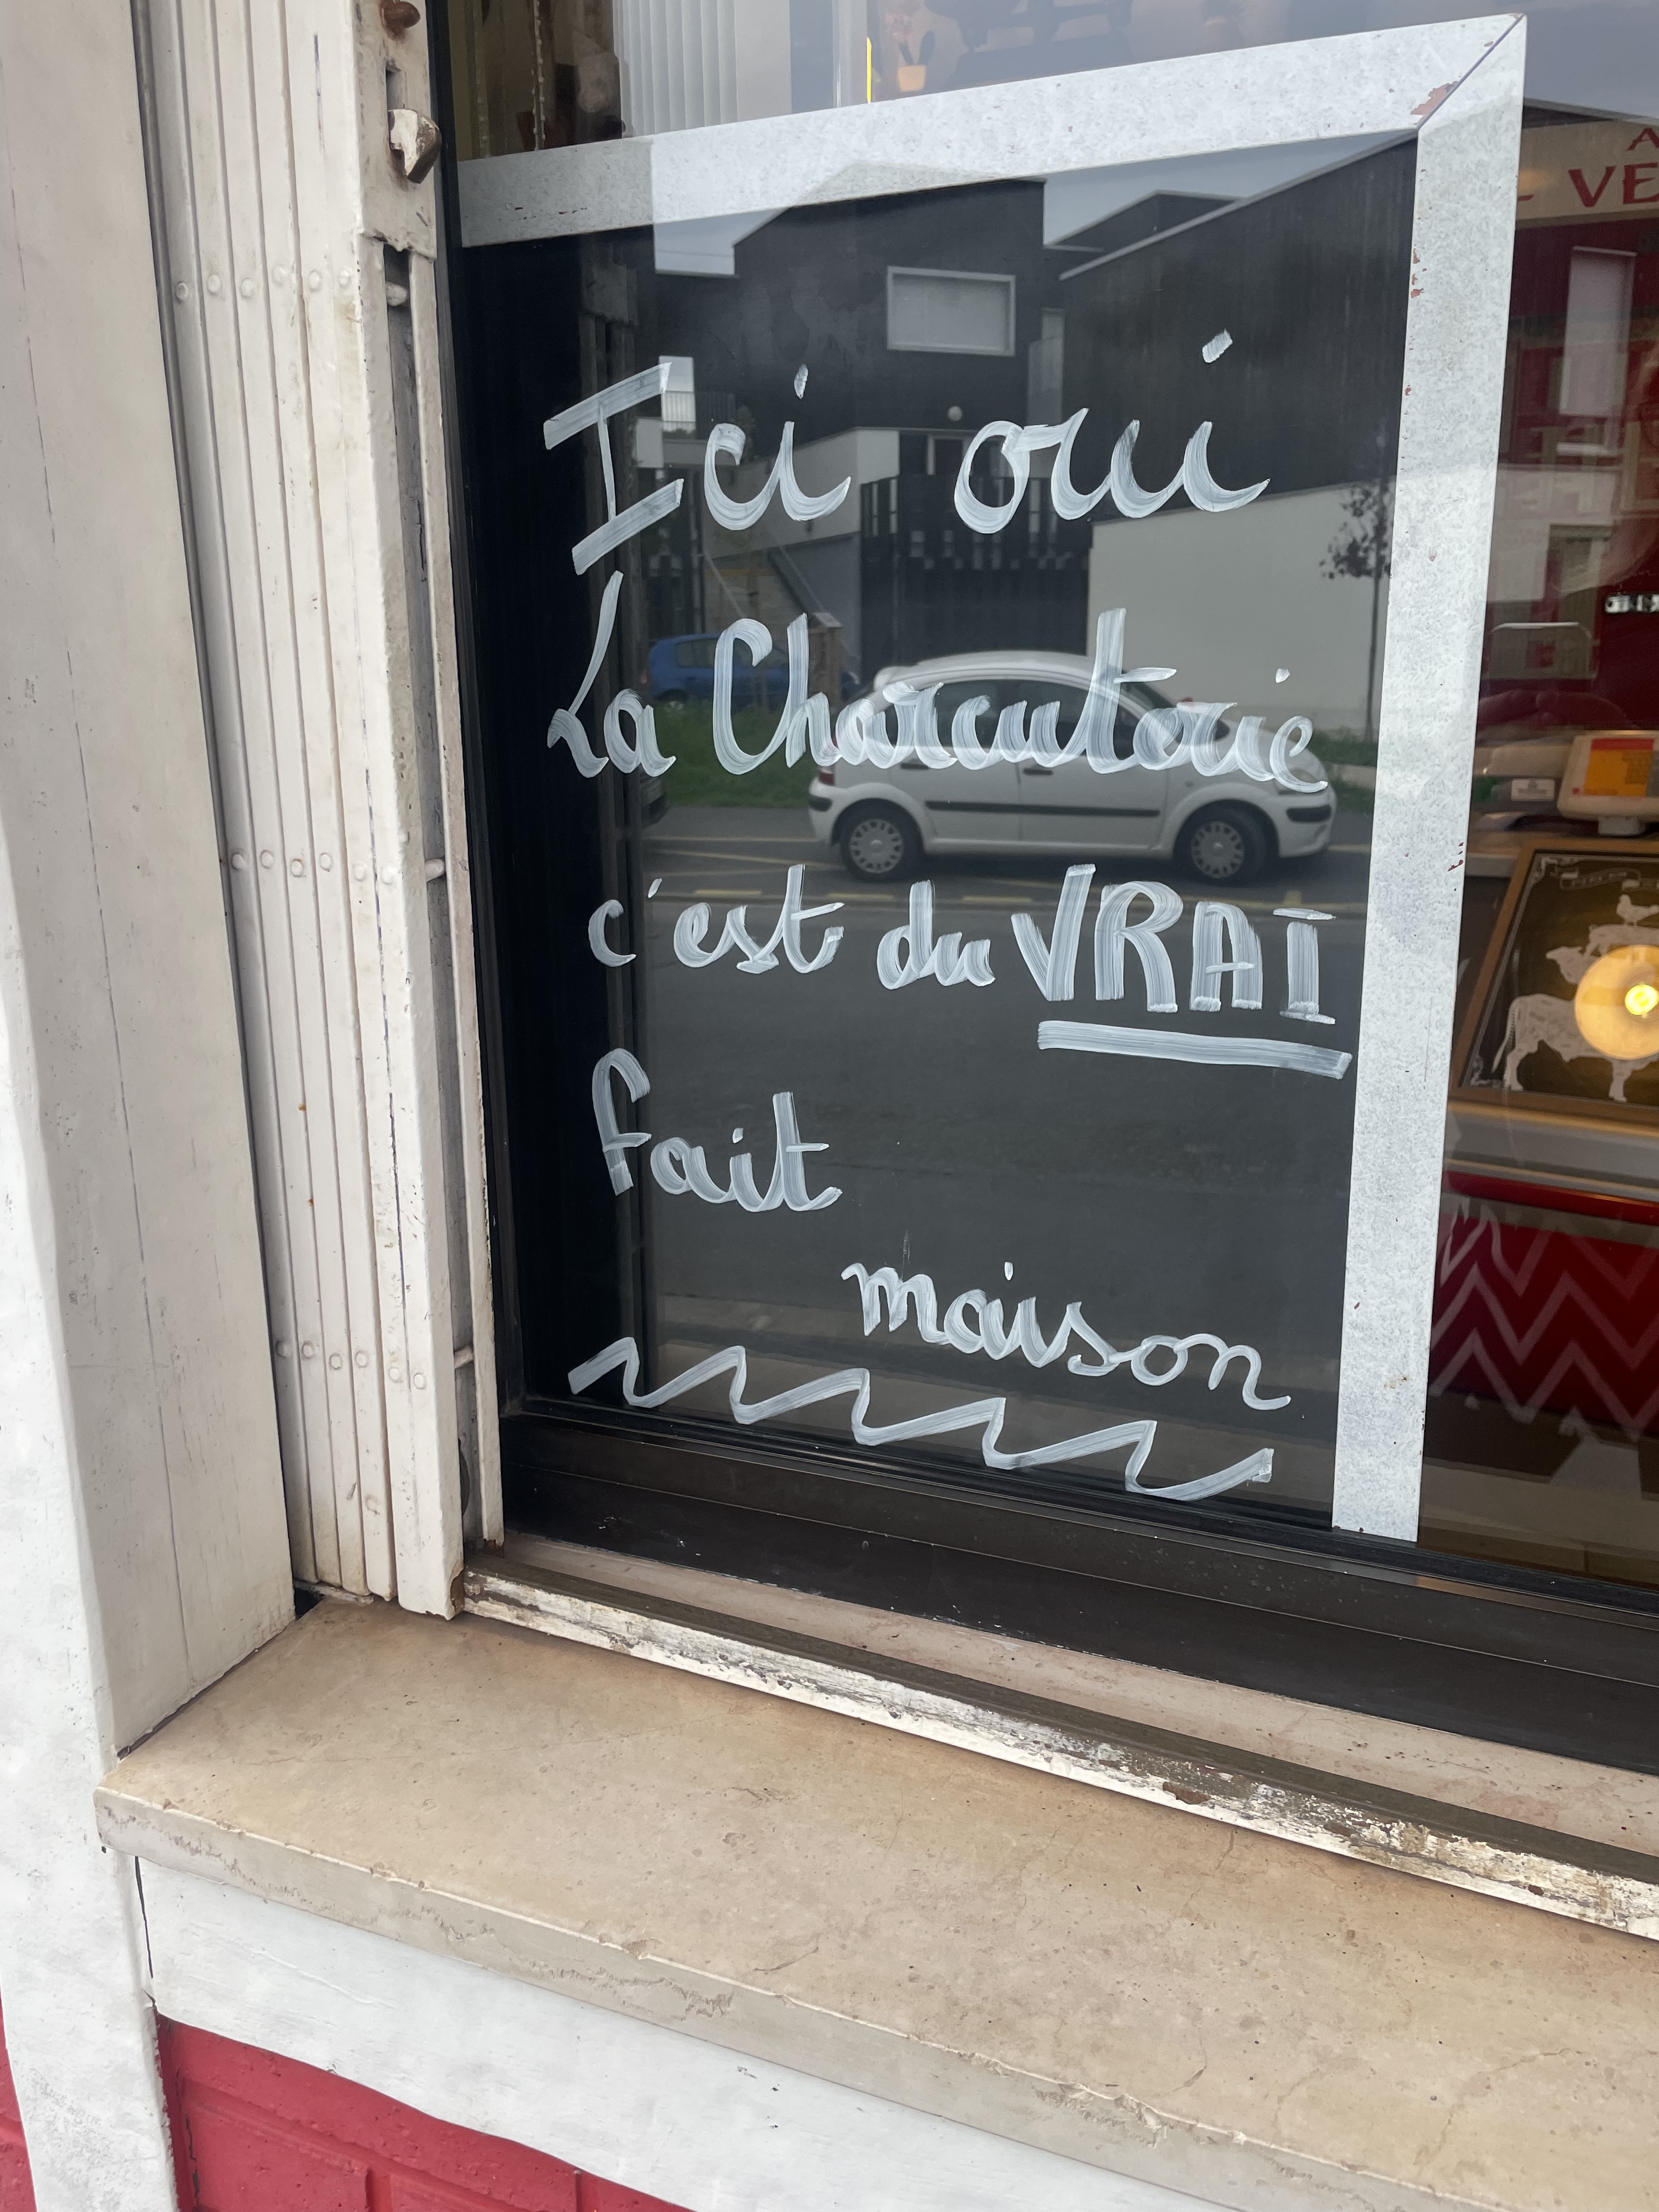 Ici oui
La Charcuterie
c'est du VRAI
fait
maison